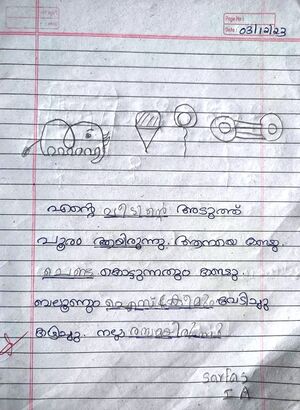 Page No:
Date: 03/12/23
എന്റെ വീടിന്റെ അടുത്ത്
പൂരം ആയിരുന്നു. ആനയെ കണ്ടു.
ചെണ്ട കൊട്ടുന്നതും കണ്ടു.
ബലൂണും ഐസ്ക്രീമും വേടിച്ചു
കളിച്ചു. നല്ല
I A